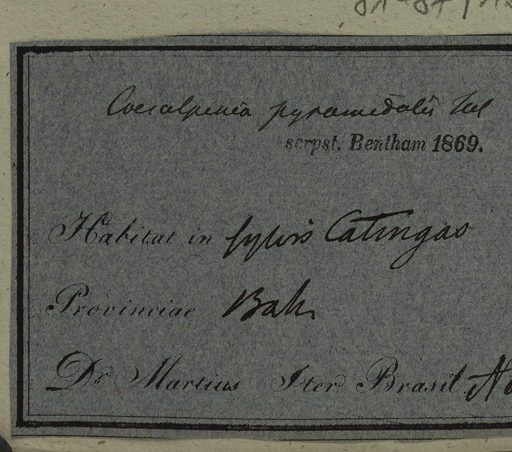 Caesalpinia pyramidalis Tul
scrpst. Bentham 1869.
Habitat in sylvis Catingas
Provinciae Bah.
Dr. Martius Iter Brasil.